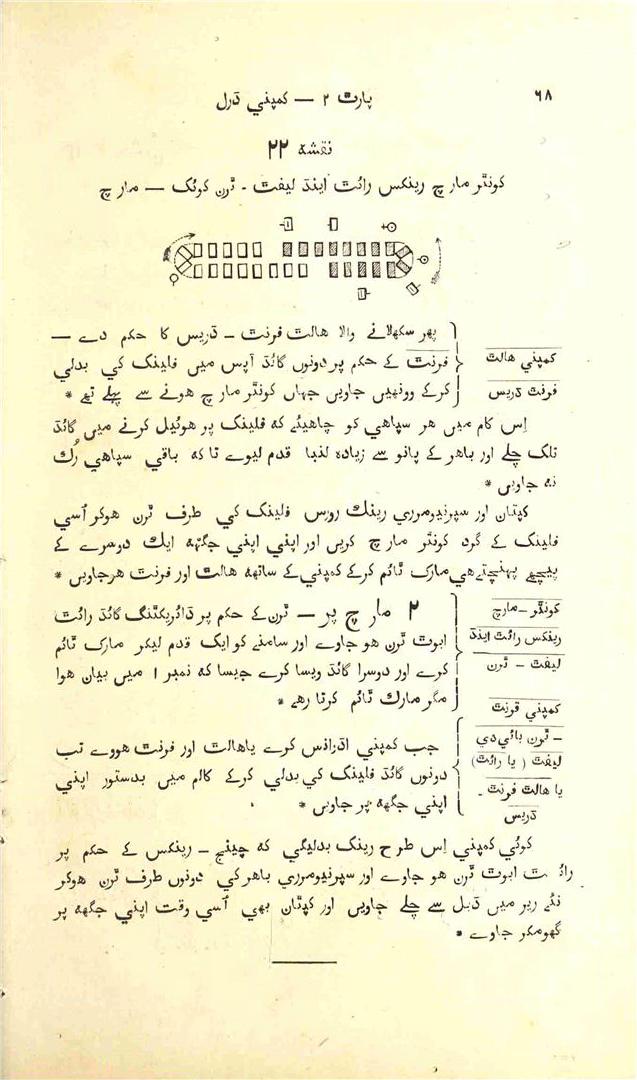 ٦٨
پارٹ ٢ — کمپني ڈرل
نقشہ ٢٢
کونٹر مارچ رینکس رائٹ اینڈ لیفٹ - ٹرن کوئک — مارچ
کمپني هالٹ
فرنٹ ڈریس
پهر سکهلانے والا هالٹ فرنٹ - ڈریس کا حکم دے —
فرنٹ کے حکم پر دونوں گائڈ آپس میں فلینک کي بدلي
کرکے وونهیں جاویں جہاں کونٹر مارچ هونے سے پہلے تهے *
اِس کام میں هر سپاهي کو چاهیئے کہ فلینک پر هوئیل کرنے میں گائڈ
تلک چلے اور باهر کے پانو سے زیادہ لنبا قدم لیوے تا کہ باقي سپاهي رُک
نہ جاویں *
کپتان اور سپرنیومرري رینك روِرس فلینک کي طرف ٹرن هوکر اُسي
فلینک کے گرد کونٹر مارچ کریں اور اپني اپني جگهہ ایك دوسرے کے
پیچهے پہنچتے هي مارك ٹائم کرکے کمپني کے ساتهہ هالٹ اور فرنٹ هرجاویں *
کونٹر - مارچ
رینکس رائٹ اینڈ
لیفٹ - ٹرن
٢ مارچ پر — ٹرن کے حکم پر ڈائریکٹنگ گائڈ رائٹ
ابوٹ ٹرن هو جاوے اور سامنے کو ایک قدم لیکر مارک ٹائم
کرے اور دوسرا گائڈ ویسا کرے جیسا کہ نمبر ١ میں بیان هوا
مگر مارك ٹائم کرتا رهے *
کمپني فرنٹ
- ٹرن بائي دي
لیفٹ ( یا رائٹ )
یا هالٹ فرنٹ -
ڈریس
جب کمپني اڈوانس کرے یا هالٹ اور فرنٹ هووے تب
دونوں گائڈ فلینک کي بدلي کرکے کالم میں بدستور اپني
اپني جگهہ پر جاویں *
کوئي کمپني اِس طرح رینک بدلیگي کہ چینج - رینکس کے حکم پر
رائٹ ابوٹ ٹرن هو جاوے اور سپرنیومرري باهر کي دونوں طرف ٹرن هوکر
نئے ریر میں ڈبل سے چلے جاویں اور کپتان بهي اُسي وقت اپني جگهہ پر
گهومکر جاوے *